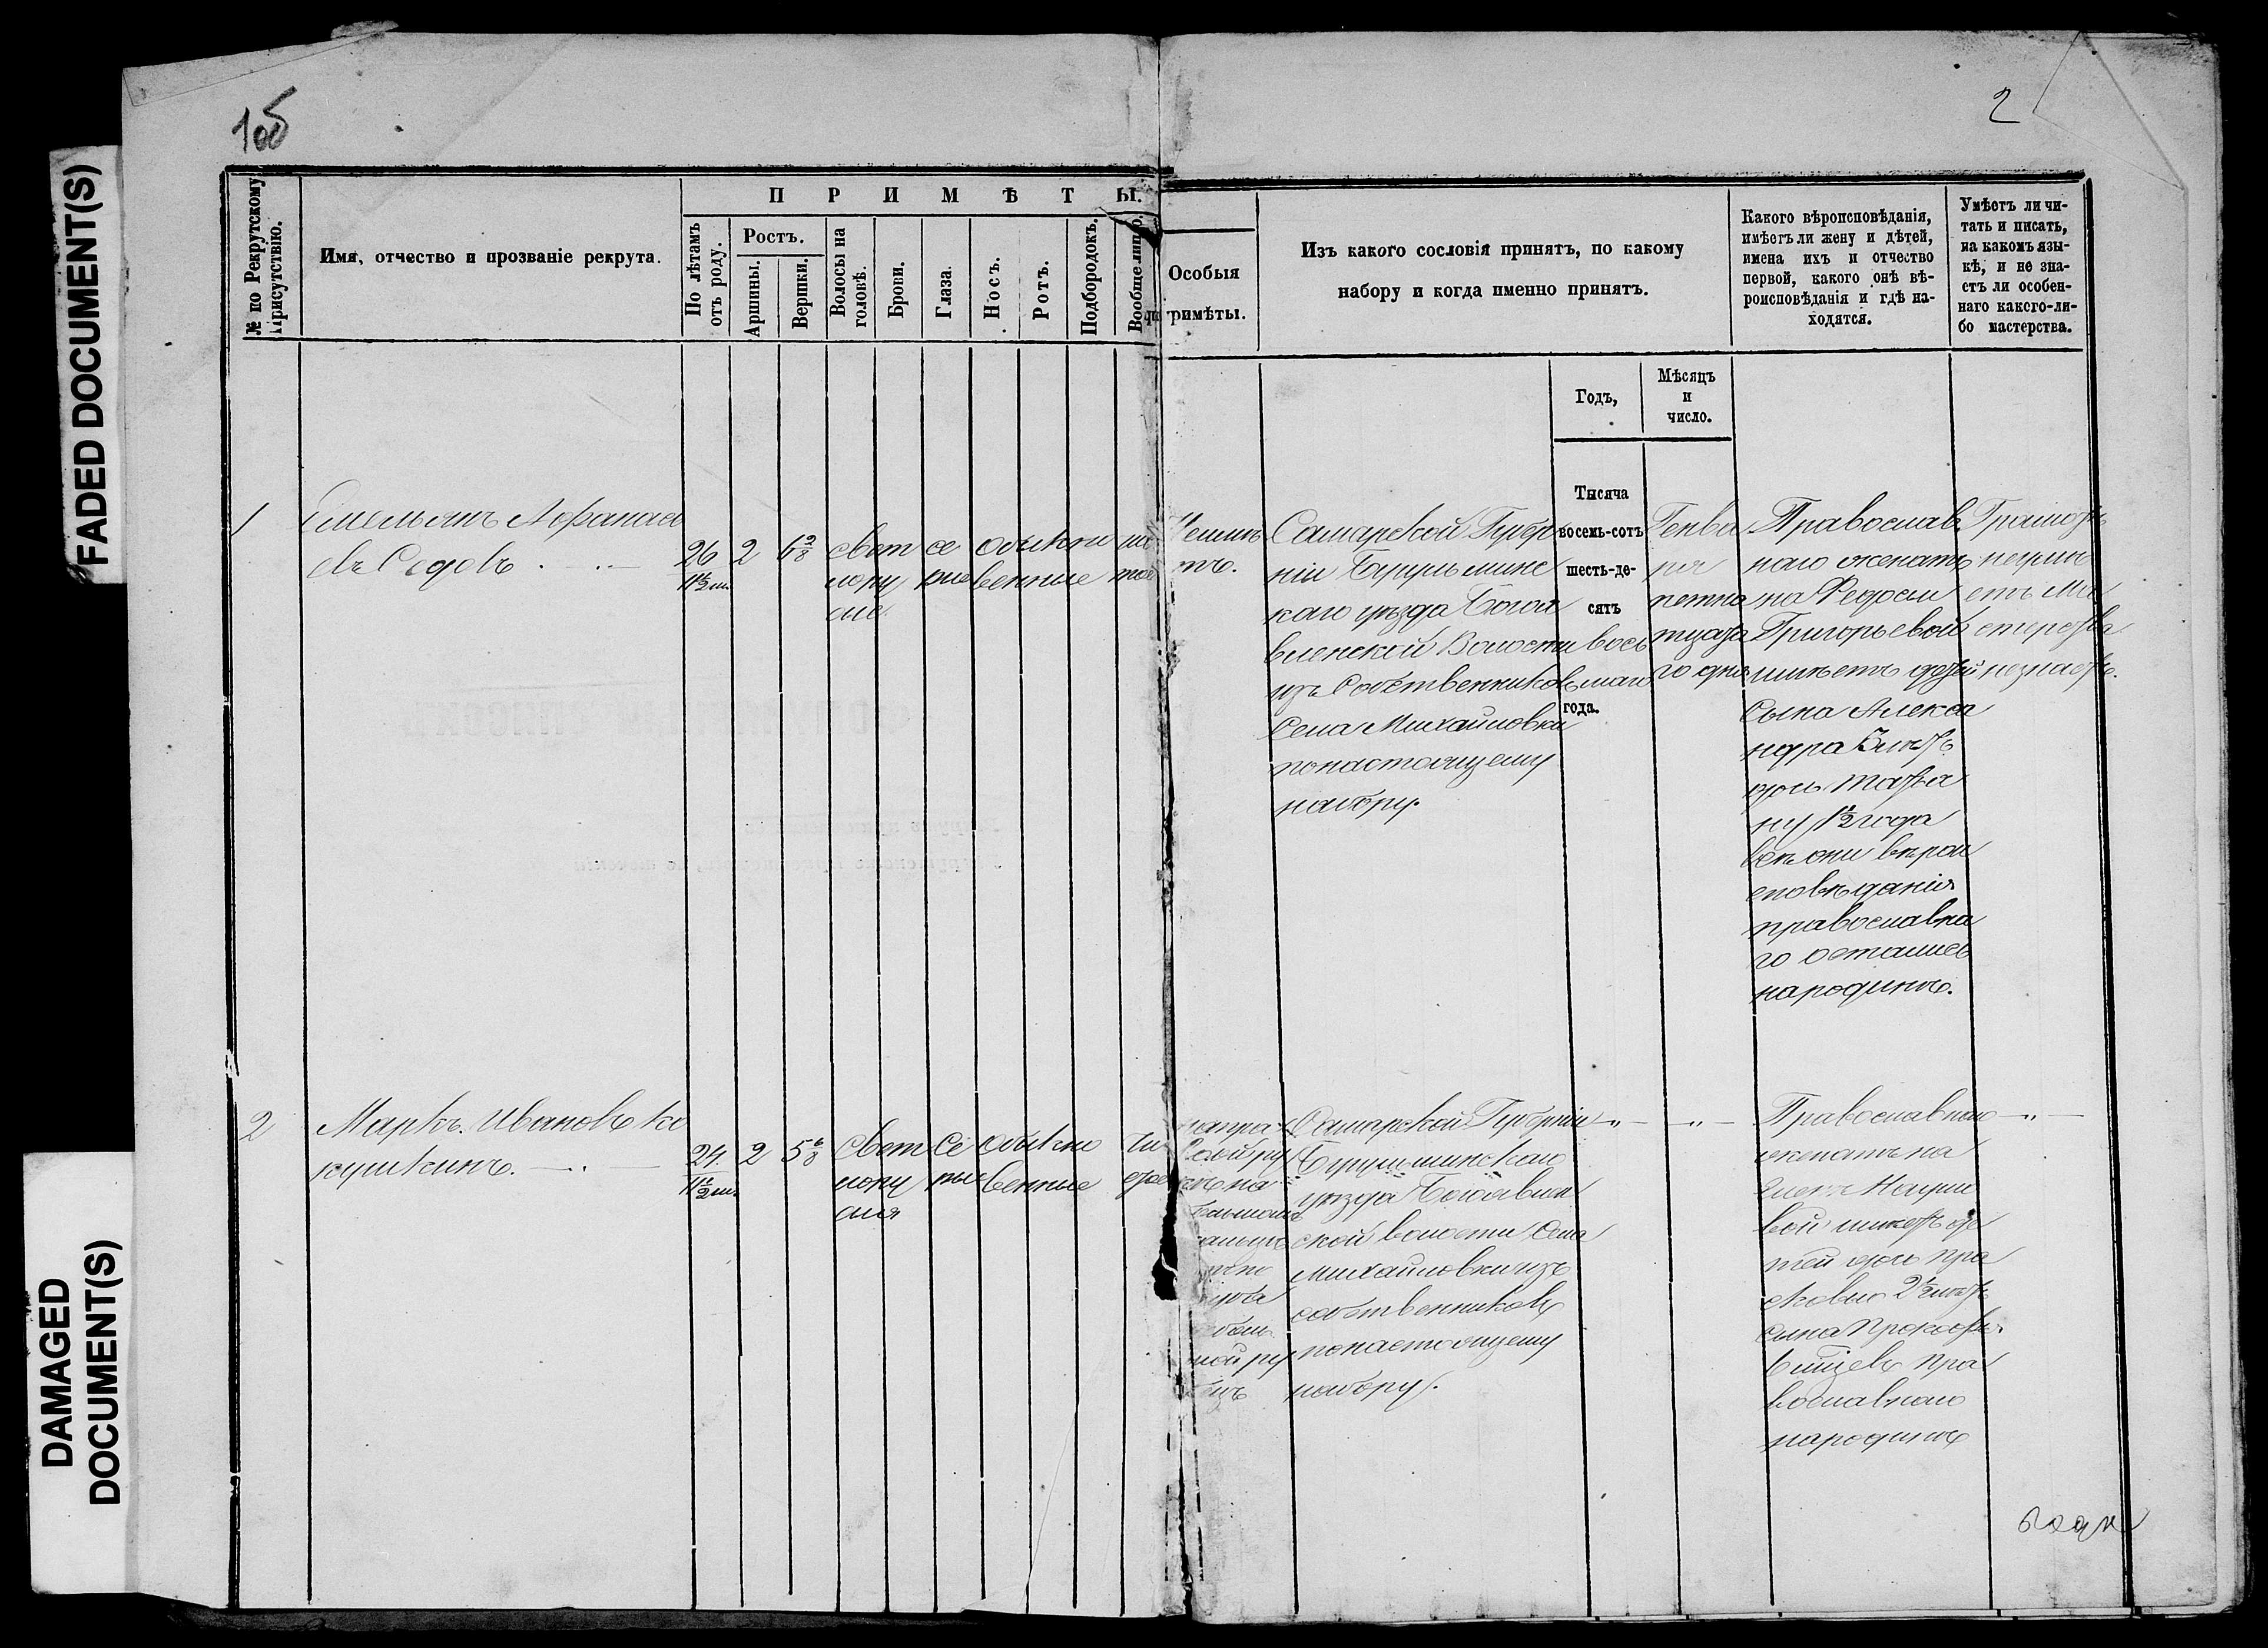 FADED DOCUMENT(S)
DAMAGED
DOCUMENT(S)
1об
2
№ по Рекрутскому
Присутствію.
Имя, отчество и прозваніе рекрута.
ПРИМѢТЫ.
По лѣтамъ
отъ роду.
Ростъ.
Аршины.
Вершки.
Волосы на
головѣ.
Брови.
Глаза.
Носъ.
Ротъ.
Подбородокъ.
Вообще лицо.
Особыя
примѣты.
Изъ какого сословія принятъ, по какому
набору и когда именно принятъ.
Годъ,
Мѣсяцъ
и
число.
Какого вѣроисповѣданія,
имѣетъ ли жену и дѣтей,
имена ихъ и отчество
первой, какого онѣ вѣ-
роисповѣданія и гдѣ на-
ходятся.
Умѣетъ ли чи-
тать и писать,
на какомъ язы-
кѣ, и не зна-
етъ ли особен-
наго какого-ли-
бо мастерства.
1
Емельянъ Афанась
евъ Седовъ
26
2
6 2/8
свет
лору
сые
се
рые
обыкно
венные
Самарской Губер
ніи Бугульминс
каго уѣзда Богоя
вленской Волости
изъ Собственниковъ
Села Михайловки
понастоящему
набору.
Тысяча
восемь-сотъ
шесть-де-
сятъ
вось
маго
года.
Генва
ря
петна
тцата
го дня
Православ
наго женатъ
на Федосьи
Григорьевой
имѣетъ дѣтей
Сына Алекса
ндра 3 лѣтъ
дочь Татья
ну 1½ года
всѣ они вѣрои
сповѣданія
православна
го остались
народинѣ.
Грамотѣ
неумѣ
етъ Ма
стерства
незнаетъ.
2
Маркъ Ивановъ Ко
кушкинъ.
24
2
5 6/8
свет
лору
сыя
се
рые
обыкно
венные
Самарской Губерніи
Бугульминскаго
уѣзда Богоявлен
ской волости Села
Михайловки изъ
собственниковъ
понастоящему
набору.
Православнаго
женатъ на
вой имѣетъ дѣ
тей дочь Пра
сковью 2½ лѣтъ
сына
6 мѣсцевъ Пра
вославнаго
народинѣ